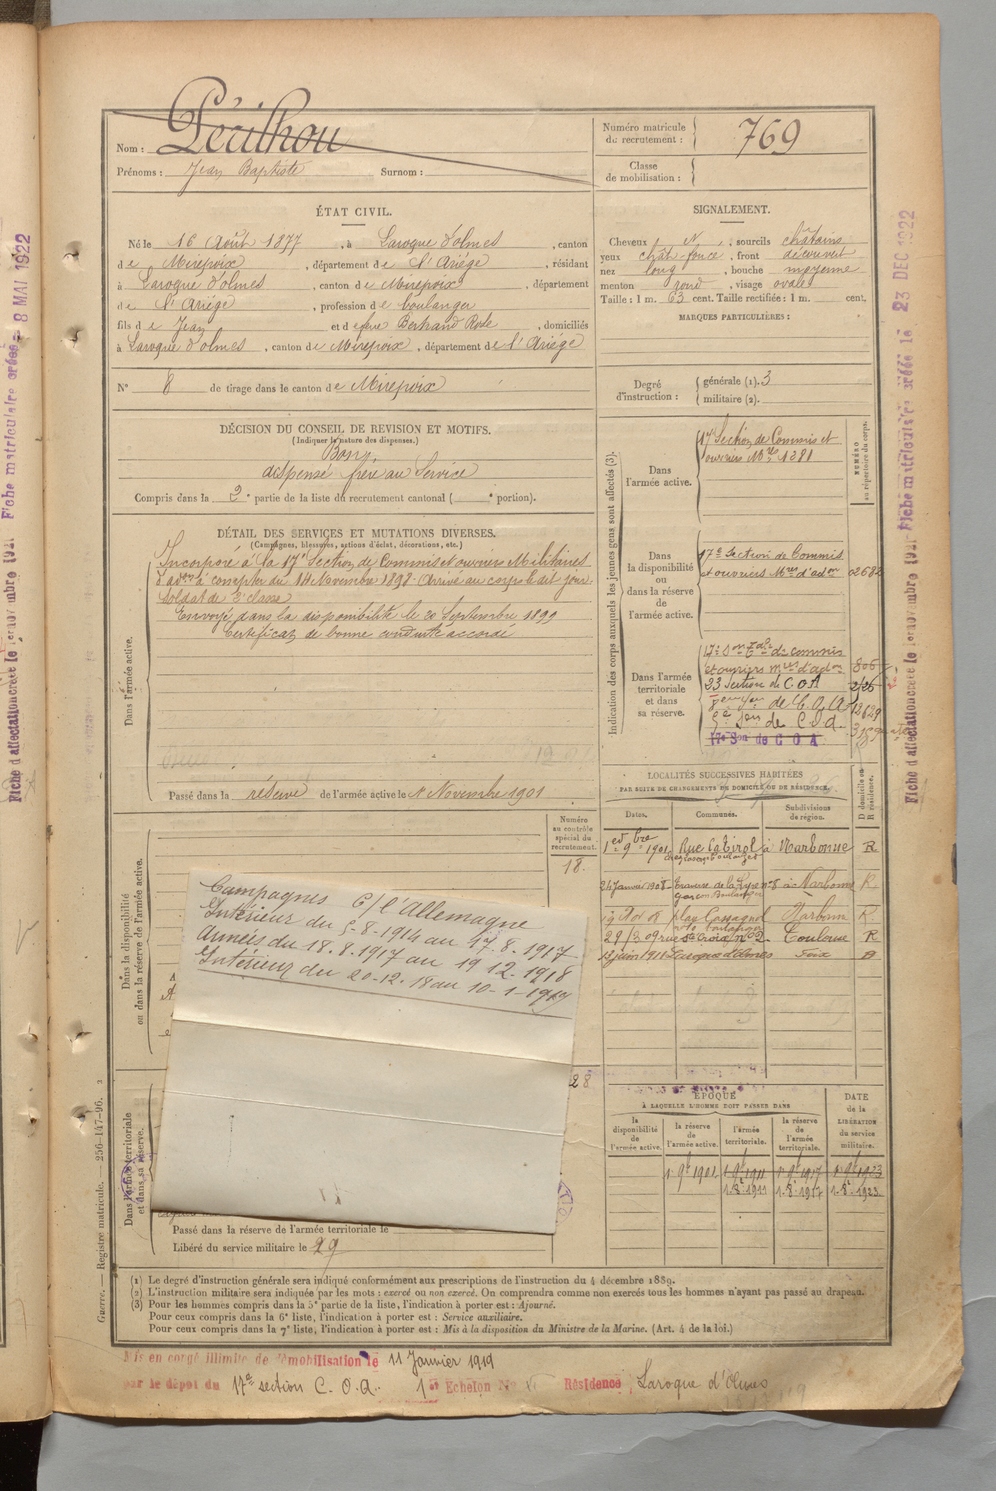 Nom : Pécilhou
Prénoms : Jean Baptiste Surnom :
Numéro matricule du recrutement : 769
Classe de mobilisation :
ÉTAT CIVIL.
Né le 16 Août 1877, à Laroque d'olmes, canton
de Mirepoix, département de l'Ariège, résidant
à Laroque d'olmes, canton de Mirepoix, département
de l'Ariège, profession de boulanger
fils de Jean et de feue Bertrand Rose, domiciliés
à Laroque d'olmes, canton de Mirepoix, département de l'Ariège
N° 8 de tirage dans le canton de Mirepoix
SIGNALEMENT.
Cheveux N, sourcils châtains
yeux chât. foncé, front découvert
nez long, bouche moyenne
menton rond, visage ovale
Taille : 1 m. 63 cent. Taille rectifiée : 1 m. cent.
MARQUES PARTICULIÈRES :
Degré d'instruction : générale (1). 3
militaire (2).
DÉCISION DU CONSEIL DE REVISION ET MOTIFS.
(Indiquer la nature des dispenses.)
Bon
dispensé frère au Service
Compris dans la 2e partie de la liste du recrutement cantonal ( e portion).
DÉTAIL DES SERVICES ET MUTATIONS DIVERSES.
(Campagnes, blessures, actions d'éclat, décorations, etc.)
Dans l'armée active.
Incorporé à la 17e Section de Commis et ouvriers Militaires
d'adon à compter du 14 Novembre 1898. Arrivé au corps le dit jour
soldat de 2e classe
Envoyé dans la disponibilité le 20 Septembre 1899
Certificat de bonne conduite accordé
Passé dans la réserve de l'armée active le 1 Novembre 1901
Indication des corps auxquels les jeunes gens sont affectés (3).
NUMÉRO au répertoire du corps.
Dans l'armée active.
17e Section de Commis et
ouvriers Mres 1281
Dans la disponibilité ou dans la réserve de l'armée active.
17e Section de Commis
et ouvriers Mres d'adon 02682
Dans l'armée territoriale et dans sa réserve.
17e Son Tale de commis
et ouvriers mres d'adon 806
23 Section de C O A
de C. O. A
Son de C. O. A.
17e Son de C O A
LOCALITÉS SUCCESSIVES HABITÉES
PAR SUITE DE CHANGEMENTS DE DOMICILE OU DE RÉSIDENCE.
Dates. Communes. Subdivisions de région. D domicile ou R résidence.
1er 9bre 1901 Rue Cabirol à Narbonne R
24 Janvier 1908 Traverse de la Lyre n° 8 à Narbonne R
garçon Boulanger
plan Cassagnol Narbonne R
29/3 09 rue Ste Croix n° 2 Toulouse R
Juin 1911 Laroque d'olmes Foix D
Numéro au contrôle spécial du recrutement.
18.
Dans la disponibilité ou dans la réserve de l'armée active.
Campagnes C/ l'Allemagne
Intérieur du 5-8-1914 au 17.8.1917
Armées du 18.8.1917 au 19 12.1918
Intérieur du 20-12.18 au 10-1-1919
28
ÉPOQUE
À LAQUELLE L'HOMME DOIT PASSER DANS
la disponibilité de l'armée active.
la réserve de l'armée active.
l'armée territoriale.
la réserve de l'armée territoriale.
DATE de la LIBÉRATION du service militaire.
1r 9e 1901 1. 9e 1911 1r 9e 1917 1r 9e 1923
1. 8e 1911 1. 8e 1917 1. 8e 1923
Dans l'armée territoriale et dans sa réserve.
Passé dans la réserve de l'armée territoriale le
Libéré du service militaire le 29
(1) Le degré d'instruction générale sera indiqué conformément aux prescriptions de l'instruction du 4 décembre 1889.
(2) L'instruction militaire sera indiquée par les mots : exercé ou non exercé. On comprendra comme non exercés tous les hommes n'ayant pas passé au drapeau.
(3) Pour les hommes compris dans la 5e partie de la liste, l'indication à porter est : Ajourné.
Pour ceux compris dans la 6e liste, l'indication à porter est : Service auxiliaire.
Pour ceux compris dans la 7e liste, l'indication à porter est : Mis à la disposition du Ministre de la Marine. (Art. 4 de la loi.)
Mis en congé illimité de démobilisation le 11 Janvier 1919
par le dépôt du 17e section C. O. A. 1er Echelon N° Résidence Laroque d'Olmes
Guerre. — Registre matricule. — 256-147-96.
Fiche matriculaire créée le 8 MAI 1922
Fiche matriculaire créée le 23 DEC 1922